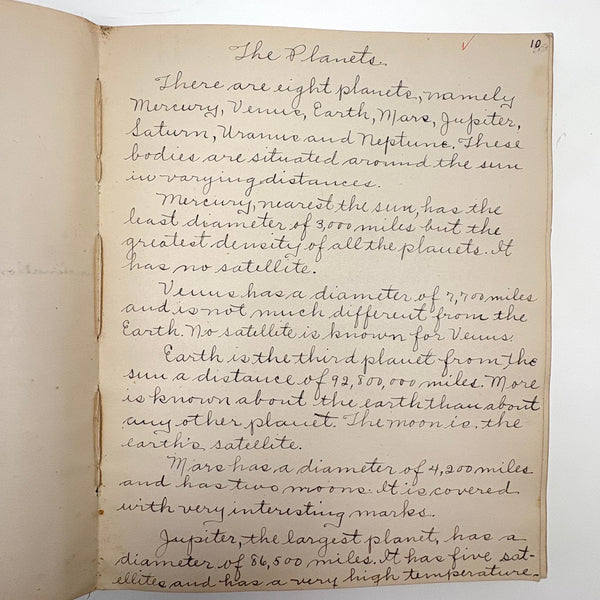 10
The Planets.
There are eight planets, namely
Mercury, Venus, Earth, Mars, Jupiter,
Saturn, Uranus and Neptune. These
bodies are situated around the sun
in varying distances.
Mercury, nearest the sun, has the
least diameter of 3,000 miles but the
greatest density of all the planets. It
has no satellite.
Venus has a diameter of 7,700 miles
and is not much different from the
Earth. No satellite is known for Venus.
Earth is the third planet from the
sun a distance of 92,800,000 miles. More
is known about the earth than about
any other planet. The moon is the
earth's satellite.
Mars has a diameter of 4,200 miles
and has two moons. It is covered
with very interesting marks.
Jupiter, the largest planet, has a
diameter of 86,500 miles. It has five sat-
ellites and has a very high temperature.